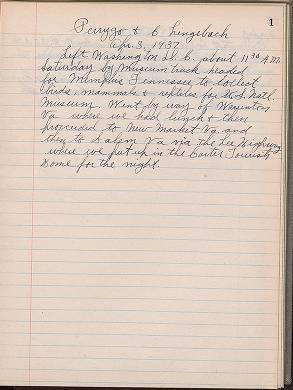 1
Perrygo & C Lingebach
Apr. 3, 1937
Left Washington D. C. about 11 30 A.M.
Saturday by Museum truck headed
for Memphis Tennessee to collect
birds, mammals & reptiles for U.S. Natl.
Museum. Went by way of Warrenton
Va where we had lunch & then
proceeded to New Market Va and
then to Salem Va via the Lee Highway
where we put up in the Carter Tourist
Home for the night.